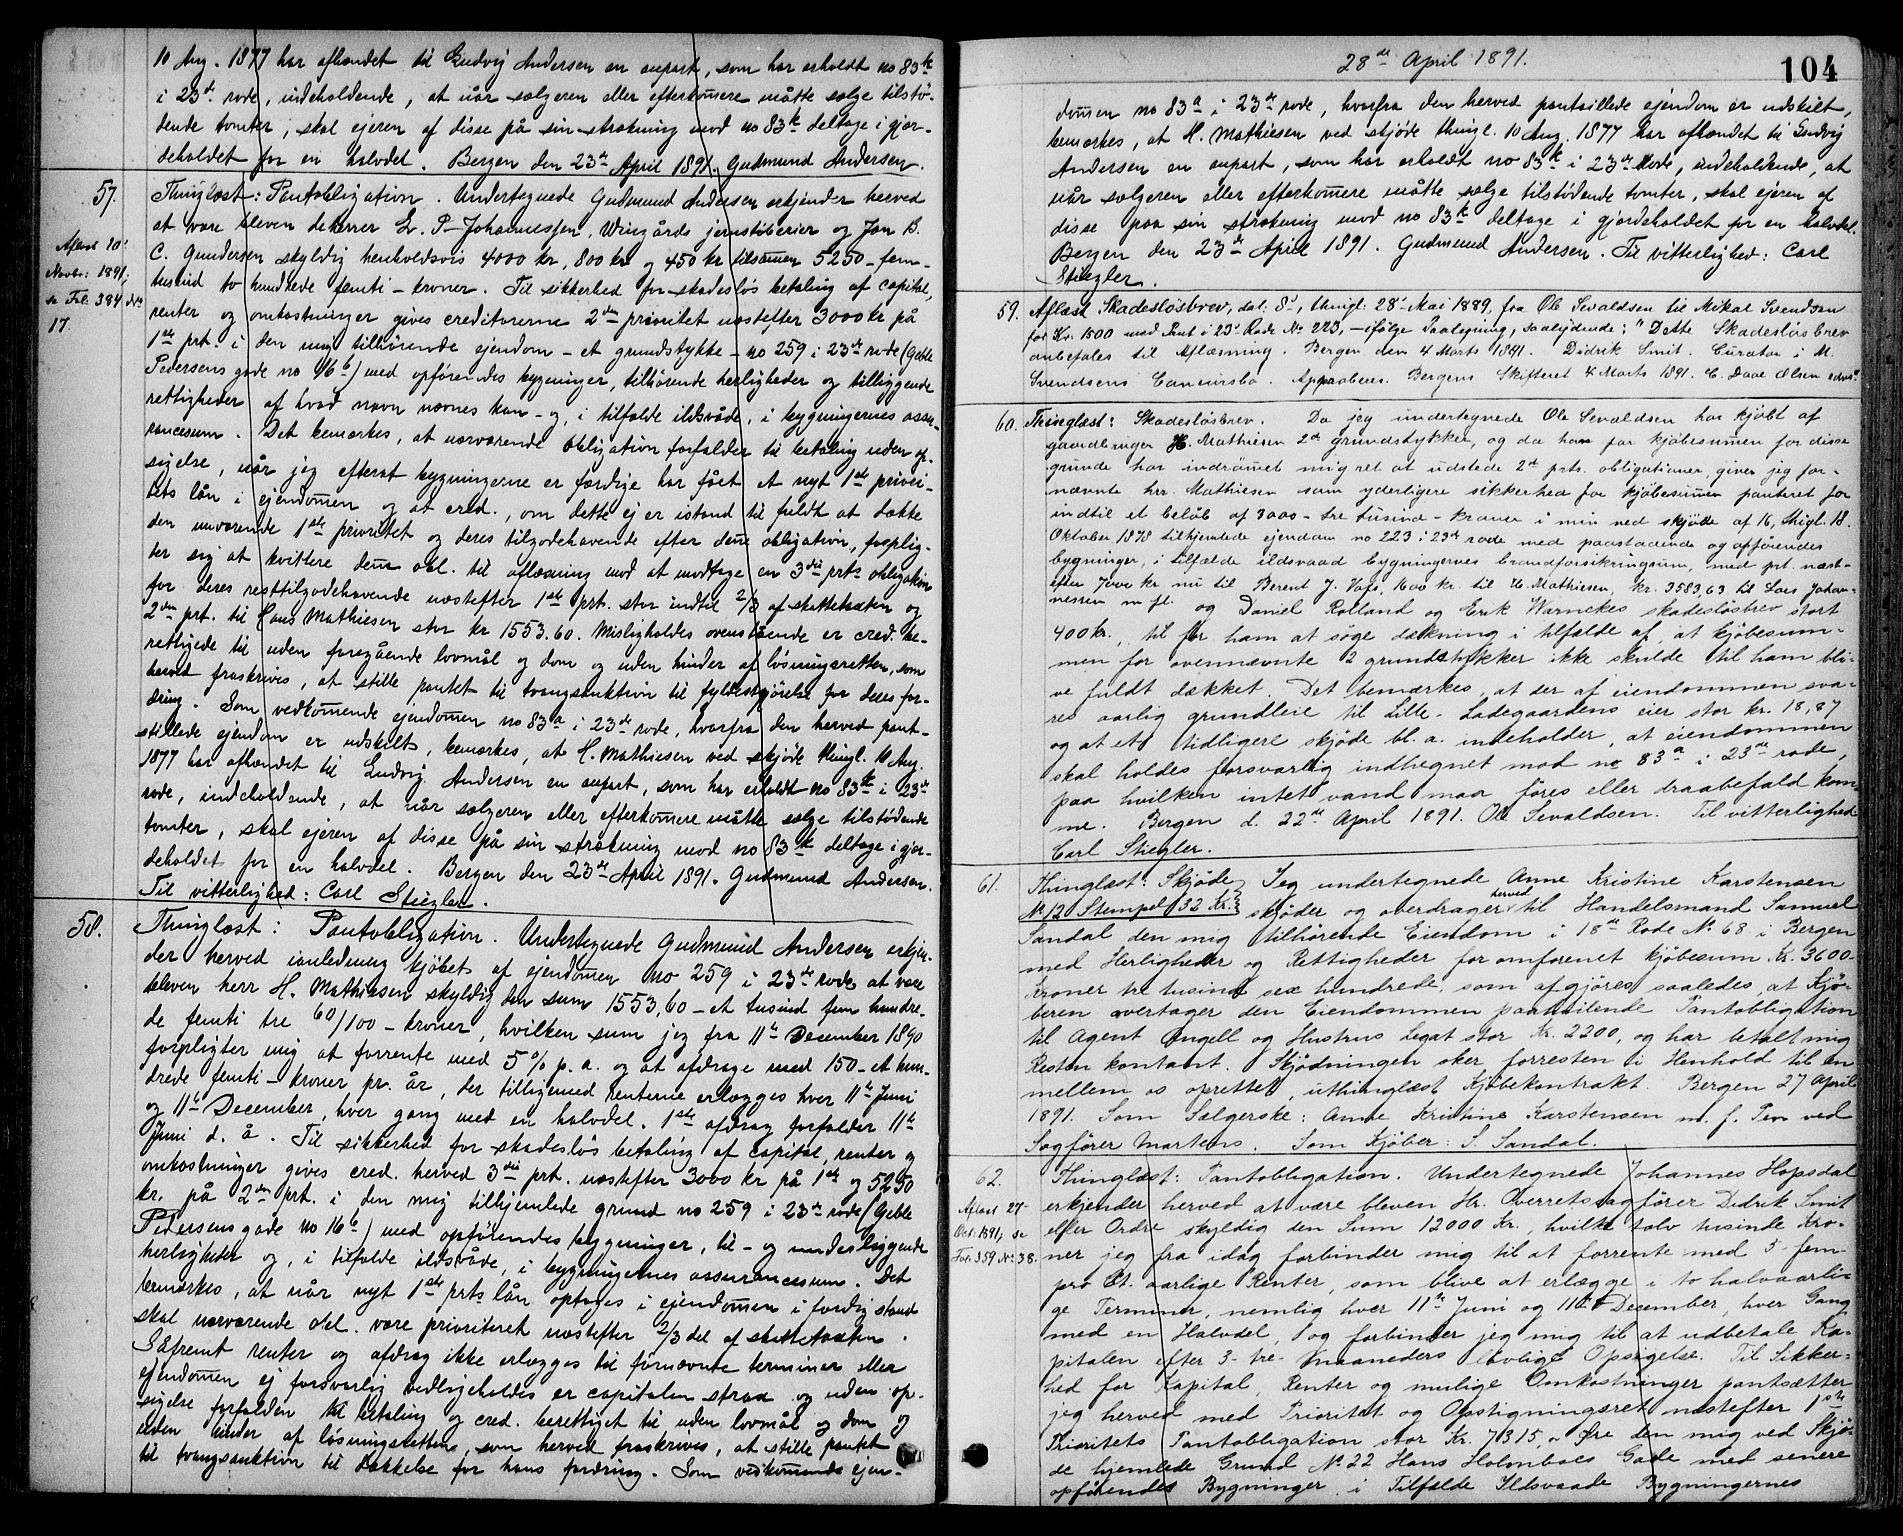 10 Aug. 1877 har afhændet til Ludvig Andersen en anpart, som har erholdt no 83k
i 23de rode, indeholdende, at når sælgeren eller efterkomere måtte sælge tilstø-
dende tomter, skal ejeren af disse på sin strækning mod no 83k deltage i gjær-
deholdet for en halvdel. Bergen den 23de April 1891. Gudmund Andersen.
57.
Aflæst 20'
Novbr: 1891,
se Fol. 384 No
17.
Thinglæst: Pantobligation. Undertegnede Gudmund Andersen erkjender herved
at være bleven de herrer L. P. Johannessen, Wingårds jernstøberier og Jan B.
C. Gundersen skyldig henholdsvis 4000 kr, 800 kr og 450 kr tilsamen 5250 - fem-
tusind to hundrede femti - kroner. Til sikkerhed for skadesløs betaling af capital,
renter og omkostninger gives creditorerne 2den prioritet næstefter 3000 kr på
1ste prt. i den mig tilhørende ejendom - et grundstykke - no 259 i 23de rode (Geble
Pedersens gade no 16b) med opførendes bygninger, tilhørende herligheder og tilliggende
rettigheder af hvad navn nævnes kan - og, i tilfælde ildsvåde, i bygningernes assu-
rancesum. Det bemærkes, at nærværende obligation forfalder til betaling uden op-
sigelse, når jeg efterat bygningerne er færdige har fået et nyt 1ste priori-
tets lån i ejendomen og at cred., om dette ej er istand til fuldt at dække
den nuværende 1ste prioritet og deres tilgodehavende efter dene obligation, forplig-
ter sig at kvittere dene obl. til aflæsning mod at modtage en 3die prts obligation
for deres resttilgodehavende næstefter 1ste prt. stor indtil 2/3 af skattetaxten og
2den prt. til Hans Mathiesen stor kr 1553.60. Misligholdes ovenstående er cred. be-
rettigede til uden foregående lovmål og dom og uden hinder af løsningsretten, som
herved fraskrives, at stille pantet til tvangsauktion til fyldestgjørelse for deres for-
dring. Som vedkomende ejendomen no 83a i 23de rode, hvorfra den herved pant-
stillede ejendom er udskilt, bemærkes, at H. Mathiesen ved skjøde thingl. 10 Aug.
1877 har afhændet til Ludvig Andersen en anpart, som har erholdt no 83k i 23de
rode, indeholdende, at når sælgeren eller efterkomere måtte sælge tilstødende
tomter, skal ejeren af disse på sin strækning mod no 83k deltage i gjær-
deholdet for en halvdel. Bergen den 23de April 1891. Gudmund Andersen.
Til vitterlighed: Carl Stiegler.
58.
Thinglæst: Pantobligation. Undertegnede Gudmund Andersen erkjen-
der herved i anledning kjøbet af ejendomen no 259 i 23de rode at være
bleven herr H. Mathiesen skyldig den sum 1553,60 - et tusind fem hundre-
de femti tre 60/100 - kroner, hvilken sum jeg fra 11te December 1890
forpligter mig at forrente med 5 % p. a. og at afdrage med 150 - et hun-
drede femti - kroner pr. år, der tilligemed renterne erlægges hver 11te Juni
og 11te December, hver gang med en halvdel. 1ste afdrag forfalder 11te
Juni d. å. Til sikkerhed for skadesløs betaling af capital, renter og
omkostninger gives cred. herved 3die prt. næstefter 3000 kr på 1ste og 5250
kr. på 2den prt. i den mig tilhjemlede grund no 259 i 23de rode (Geble
Pedersens gade no 16b) med opførendes bygninger, til- og underliggende
herligheder og, i tilfælde ildsvåde, i bygningernes assurancesum. Det
bemærkes, at når nyt 1ste prts lån optages i ejendomen i færdig stand
skal nærværende obl. være prioriteret næstefter 2/3 del af skattetaxten.
Såfremt renter og afdrag ikke erlægges til førnævnte terminer eller
ejendomen ej forsvarlig vedligeholdes er capitalen strax og uden op-
sigelse forfalden til betaling og cred. berettiget til uden lovmål og dom og
uden hinder af løsningsretten, som herved fraskrives, at stille pantet
til tvangsauktion til dækkelse for hans fordring. Som vedkomende ejen-
28de April 1891.
104
domen no 83a i 23de rode, hvorfra den herved pantstillede ejendom er udskilt,
bemærkes, at H. Mathiesen ved skjøde thingl. 10 Aug. 1877 har afhændet til Ludvig
Andersen en anpart, som har erholdt no 83k i 23de Rode, indeholdende, at
når sælgeren eller efterkomere måtte sælge tilstødende tomter, skal ejeren af
disse paa sin strækning mod no 83k deltage i gjærdeholdet for en halvdel.
Bergen den 23de April 1891. Gudmund Andersen. Til vitterlighed: Carl
Stiegler.
59.
Aflæst Skadesløsbrev, dat. 8', thingl. 28' Mai 1889, fra Ole Sevaldsen til Mikal Svendsen
for Kr. 1500 med Pant i 23' Rode No 223, - ifølge Paategning, saalydende: "Dette Skadesløsbrev
anbefales til Aflæsning. Bergen den 4 Marts 1891. Didrik Smit. Curator i M.
Svendsens Concursbo. Approberes. Bergens Skifteret 4 Marts 1891. C. Daae Olsen
60.
Thinglæst: Skadesløsbrev. Da jeg undertegnede Ole Sevaldsen har kjøbt af
gaardbruger H. Mathiesen 2de grundstykker, og da han for kjøbesummen for disse
grunde har indrømet mig ret at udstede 2den prts. obligationer giver jeg for-
nævnte hrr. Mathiesen som yderligere sikkerhed for kjøbesummen panteret for
indtil et beløb af 3000 - tre tusind - kroner i min ved skjøde af 16, thigl. 18.
Oktober 1878 tilhjemlede ejendom no 223 i 23de rode med paastaaende og opførendes
bygninger, i tilfælde ildsvaad bygningernes brandforsikringsum, med prt. næst-
efter 7000 kr nu til Berent J. , 1600 kr. til H. Mathiesen, kr. 3583,63 til Lars Johan-
nessen m. fl. og Daniel Rolland og Erik Warnckes skadesløsbrev stort
400 kr., til for ham at søge dækning i tilfælde af, at kjøbesum-
men for ovennævnte 2 grundstykker ikke skulde til ham bli-
ve fuldt dækket. Det bemærkes, at der af eiendommen sva-
res aarlig grundleie til Lille-Ladegaardens eier stor kr. 18,87
og at et tidligere skjøde bl. a. indeholder, at eiendommen
skal holdes forsvarlig indhegnet mod no 83a i 23de rode,
paa hvilken intet vand maa føres eller draabefald kom-
me. Bergen d. 22de April 1891. Ole Sevaldsen. Til vitterlighed
Carl Stiegler.
61.
Thinglæst: Skjøde, Jeg undertegnede Anne Kristine Karstensen
No 12 Stempel 32 Kr. skjøder og overdrager herved til Handelsmand Samuel
Sandal den mig tilhørende Eiendom i 18de Rode No 68 i Bergen
med Herligheder og Rettigheder for omforenet Kjøbesum Kr. 3600
Kroner tre tusind sex hundrede, som afgjøres saaledes, at Kjø-
beren overtager den Eiendommen paahvilende Pantobligation
til Agent Engell og Hustrus Legat stor Kr. 2200, og har betalt mig
Resten kontant. Skjødningen sker forresten i Henhold til en
mellem os oprettet, uthinglæst Kjøbekontrakt. Bergen 27 April
1891. Som Sælgerske: Anne Kristine Karstensen m. f. Pen ved
Sagfører Martens. Som Kjøber: S. Sandal.
62.
Aflæst 27
Oct. 1891, se
Fol. 359 No 38.
Thinglæst: Pantobligation. Undertegnede Johannes Hopsdal
erkjender herved at være bleven Hr. Overretssagfører Didrik Smit
eller Ordre skyldig den Sum 12000 Kr., hvilke tolv tusinde Kro-
ner jeg fra idag forbinder mig til at forrente med 5 - fem -
pro Ct. aarlige Renter, som blive at erlægge i to halvaarli-
ge Terminer, nemlig hver 11te Juni og 11te December, hver Gang
med en Halvdel, og forbinder jeg mig til at udbetale Ka-
pitalen efter 3 - tre - Maaneders lovlige Opsigelse. Til Sikker-
hed for Kapital, Renter og mulige Omkostninger pantsætter
jeg herved med Prioritet og Opstigningsret næstefter 1ste
Prioritets Pantobligation stor Kr. 7315,- Øre den mig ved Skjø-
de hjemlede Grund No 22 Hans Holmboes Gade med senere
opførendes Bygninger, i Tilfælde Ildsvaade Bygningernes